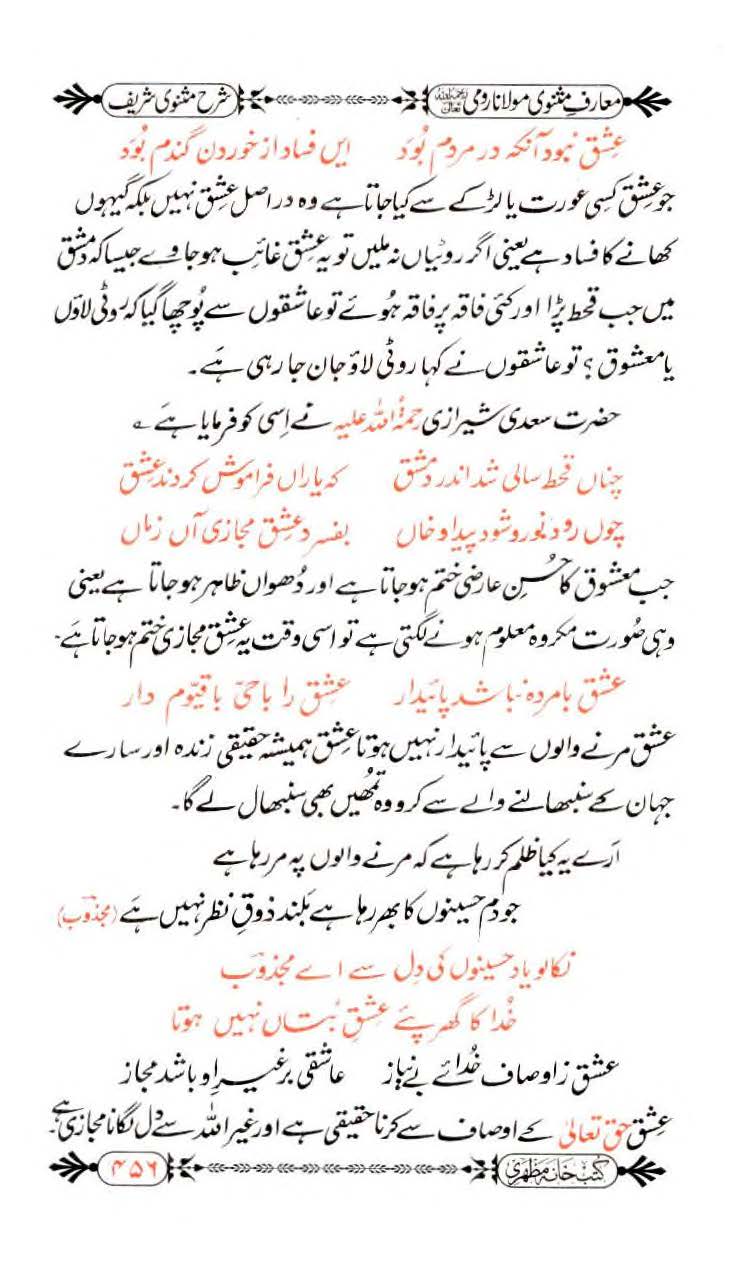 معارفِ مثنوی مولانا رومی رحمۃ اللہ تعالیٰ شرح مثنوی شریف
عِشق نبود آنکہ در مردم بُوَد ایں فساد از خوردن گندم بُوَد
جو عِشق کسی عورت یا لڑکے سے کیا جاتا ہے وہ دراصل عِشق نہیں بلکہ گیہوں
کھانے کا فساد ہے یعنی اگر روٹیاں نہ ملیں تو یہ عِشق غائب ہو جاوے جیسا کہ دمشق
میں جب قحط پڑا اور کئی فاقہ پر فاقہ ہُوئے تو عاشقوں سے پُوچھا گیا کہ روٹی لاؤں
یا معشوق ؟ تو عاشقوں نے کہا روٹی لاؤ جان جا رہی ہَے۔
حضرت سعدی شیرازی رحمۃُ اللہ علیہ نے اِسی کو فرمایا ہَے ؎
چناں قحط سالی شد اندر دمشق کہ یاراں فراموش کردند عِشق
چوں رود نور و شود پیدا دخاں بفسرد عِشق مجازی آں زماں
جب معشوق کا حُسنِ عارضی ختم ہو جاتا ہے اور دُھواں ظاہر ہو جاتا ہے یعنی
وہی صُورت مکروہ معلوم ہونے لگتی ہے تو اسی وقت یہ عِشق مجازی ختم ہو جاتا ہَے۔
عِشق با مردہ نباشد پائیدار عِشق را با حیّ با قیّوم دار
عِشق مرنے والوں سے پائیدار نہیں ہوتا عِشق ہمیشہ حقیقی زندہ اور سارے
جہان کے سنبھالنے والے سے کرو وہ تُمھیں بھی سنبھال لے گا۔
اَرے یہ کیا ظلم کر رہا ہے کہ مرنے والوں پہ مر رہا ہے
جو دَم حسینوں کا بھر رہا ہے بلند ذوقِ نظر نہیں ہَے (مجذوبؔ)
نکالو یاد حسینوں کی دِل سے اے مجذوبؔ
خُدا کا گھر پئے عِشقِ بُتاں نہیں ہوتا
عِشق ز اوصاف خُدائے بے نیاز عاشقی بر غیرِ او باشد مجاز
عِشق حق تعالیٰ کے اوصاف سے کرنا حقیقی ہے اور غیر اللہ سے دِل لگانا مجازی ہے۔
کتب خانہ مظہری ۴۵۶